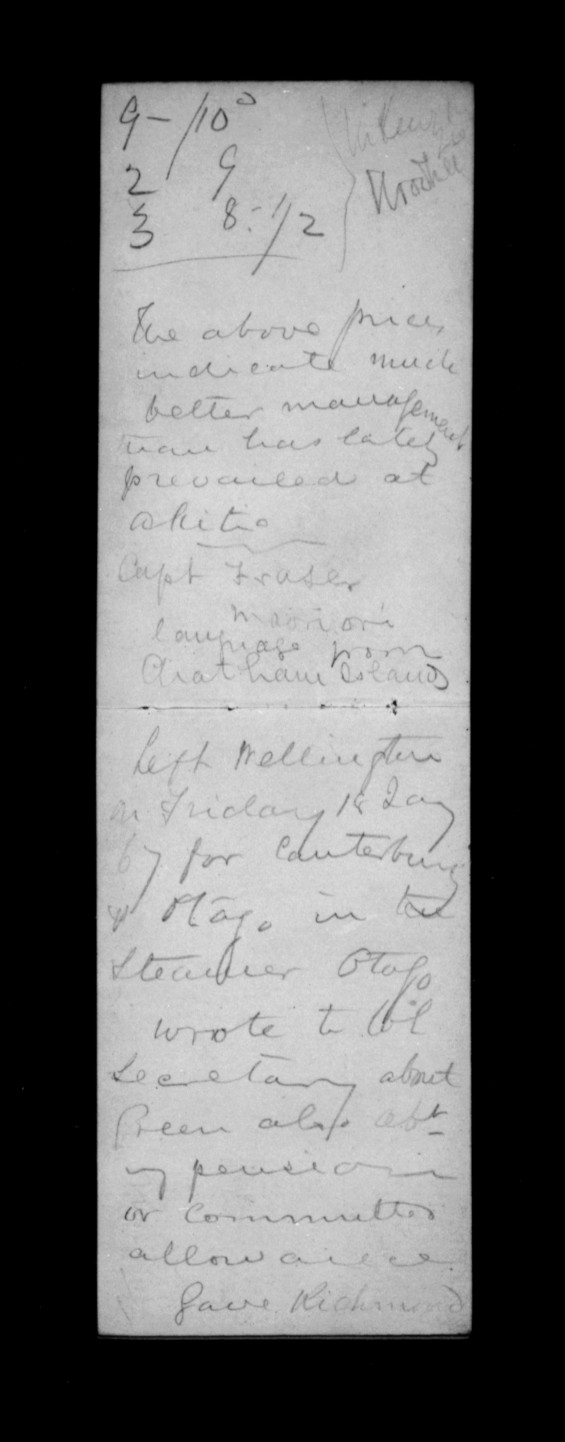 9 - /10 D
2 9
3 8:-1/2
The above prices
indicate much
better management
than has lately
prevailed at
Akitio
Capt Fraser
Moriori
language from
Chatham Islands
Left Wellington
on Friday 18 Jany
67 for Canterbury
& Otago in the
Steamer Otago
wrote to Col
Secretary about
Green also abt
my pension
or Committee
allowance.
Gave Richmond